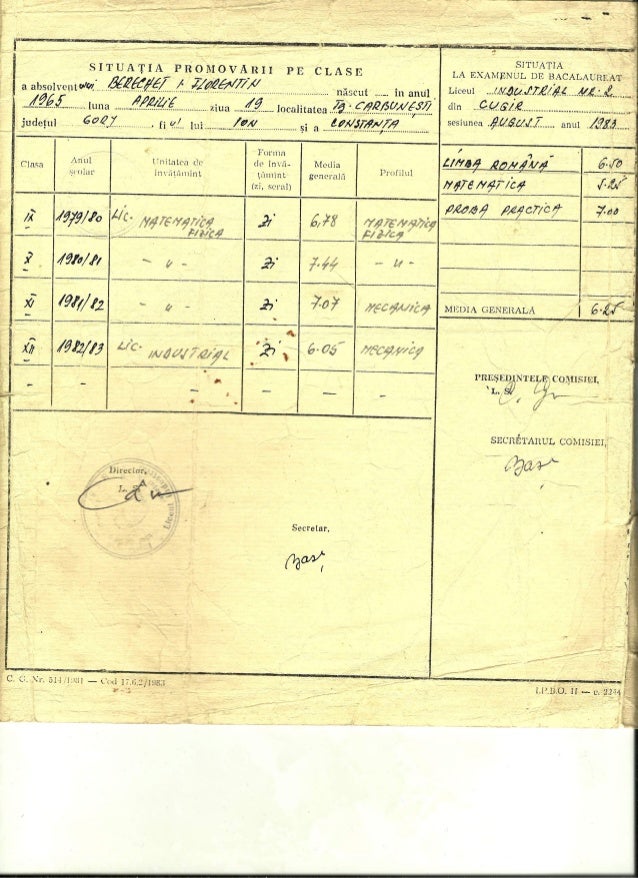 SITUAȚIA PROMOVĂRII PE CLASE
a absolvent ului BERECHET I. FLORENTIN născut ..... în anul
1965 luna APRILIE ziua 19 localitatea Tg. CĂRBUNEȘTI
județul GORJ, fi ul lui ION și a CONSTANȚA
Clasa Anul școlar Unitatea de învățămînt Forma de învățămînt (zi, seral) Media generală Profilul
IX 1979/80 LIC. MATEMATICA FIZICA Zi 6,78 MATEMATICA FIZICA
X 1980/81 - " - Zi 7.44 - " -
XI 1981/82 - " - Zi 7.07 MECANICA
XII 1982/83 LIC. INDUSTRIAL Zi 6.05 MECANICA
- - - - - -
Director,
L. S.
Secretar,
SITUAȚIA
LA EXAMENUL DE BACALAUREAT
Liceul INDUSTRIAL NR. 2
din CUGIR
sesiunea AUGUST anul 1983
LIMBA ROMÂNĂ 6.50
MATEMATICA 5.25
PROBA PRACTICA 7.00
MEDIA GENERALĂ 6.25
PREȘEDINTELE COMISIEI,
L. S.
SECRETARUL COMISIEI,
C. G. Nr. 514/1981 — Cod 17.6.2/1983
I.P.B.O. II — c. 2244